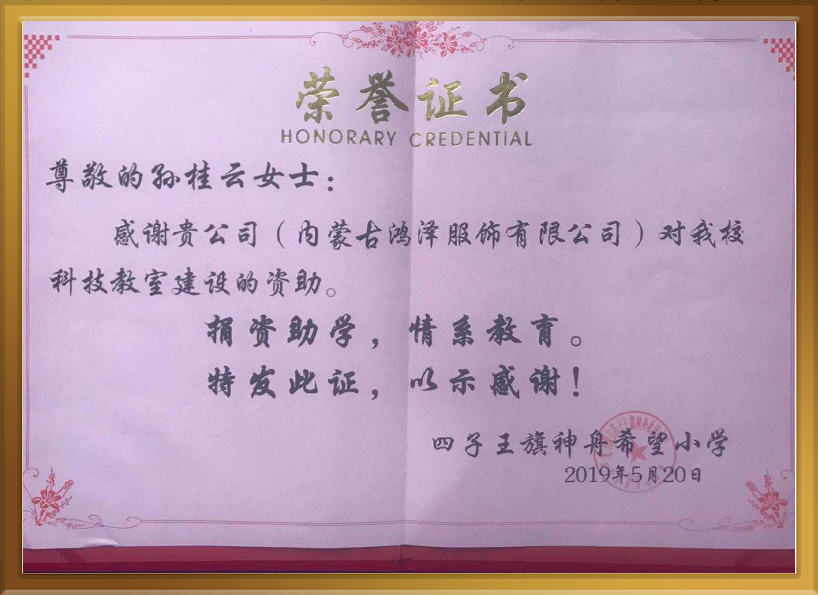 荣誉证书
HONORARY CREDENTIAL
尊敬的孙桂云女士：
感谢贵公司（内蒙古鸿泽服饰有限公司）对我校
科技教室建设的资助。
捐资助学，情系教育。
特发此证，以示感谢！
四子王旗神舟希望小学
2019年5月20日